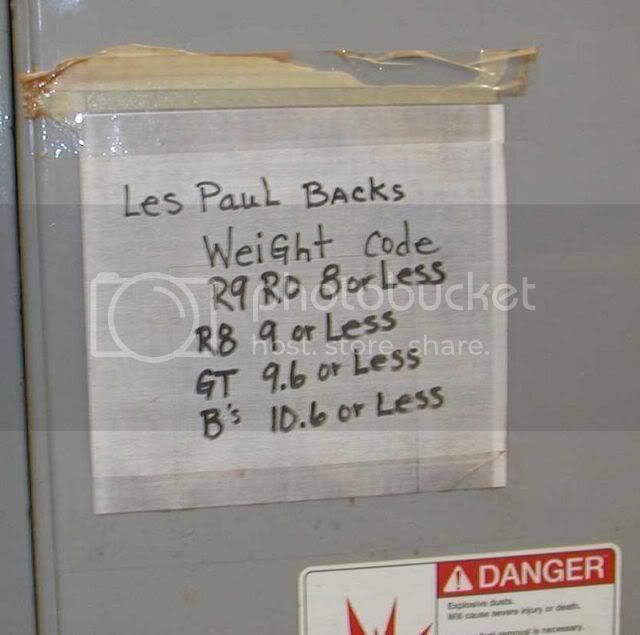 Les Paul Backs
Weight Code
R9 RO 8 or Less
R8 9 or Less
GT 9.6 or Less
B's 10.6 or Less
photobucket
host. store. share.
DANGER
Explosive dusts.
Will cause severe injury or death.
removal is necessary.